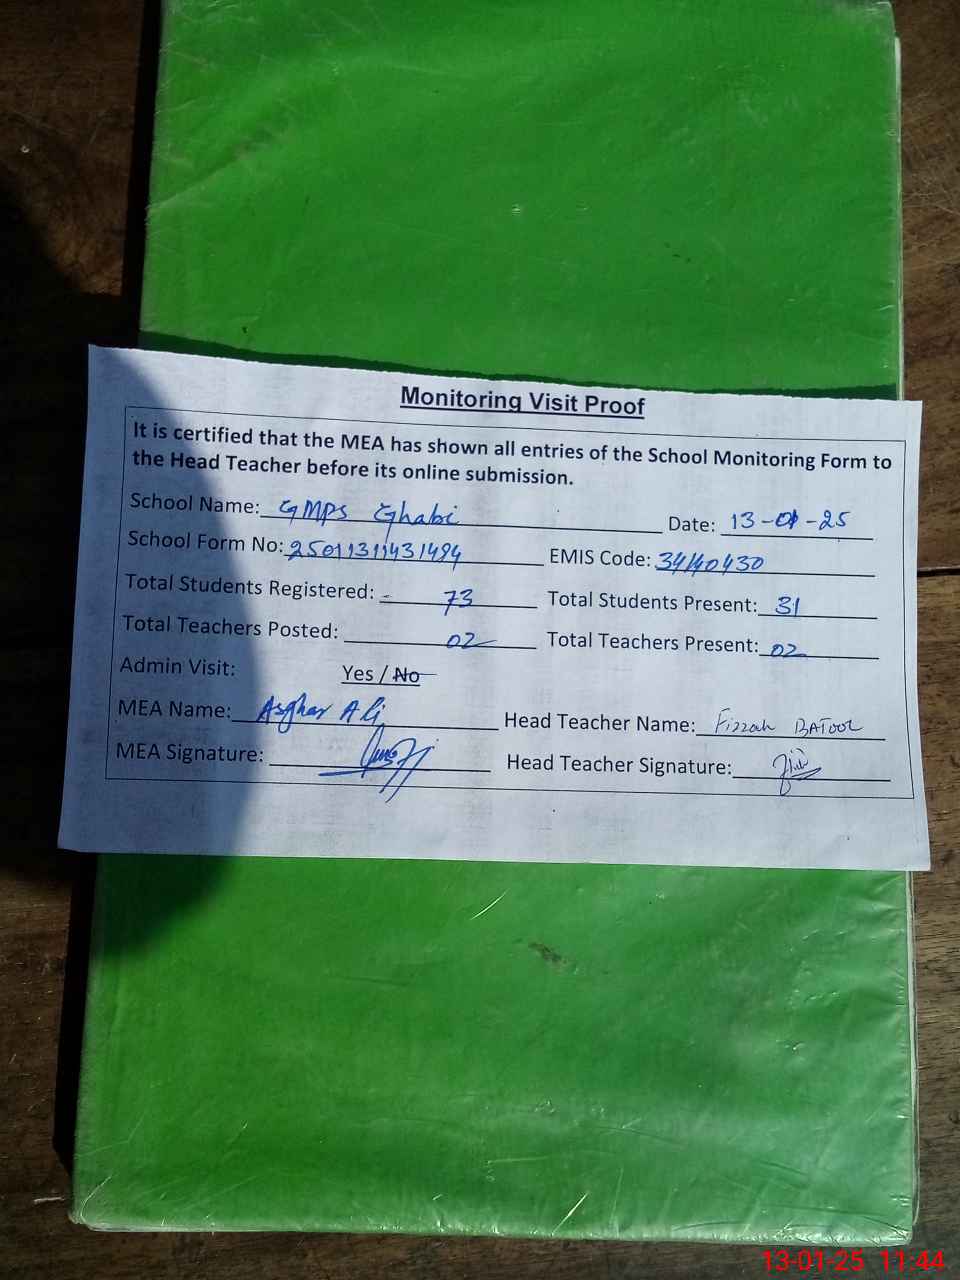 Monitoring Visit Proof
It is certified that the MEA has shown all entries of the School Monitoring Form to
the Head Teacher before its online submission.
School Name: GMPS Ghabi Date: 13-01-25
School Form No: 25011311431494 EMIS Code: 34140430
Total Students Registered: 73 Total Students Present: 31
Total Teachers Posted: 02 Total Teachers Present: 02
Admin Visit: Yes / No
MEA Name: Asghar Ali Head Teacher Name: Fizzah BATOOL
MEA Signature: Head Teacher Signature:
13-01-25 11:44